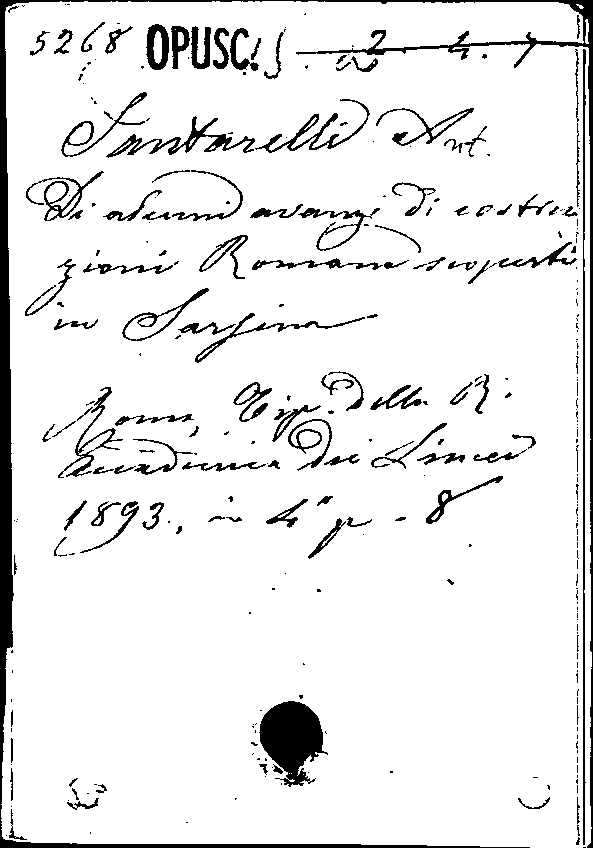 5268 OPUSC. 2. 4. 7
Santarelli Ant.
Di alcuni avanzi di costru
zioni Romane scoperti
in Sarsina
Roma, Tip. della R.
Accademia dei Lincei
1893., in 4° p - 8